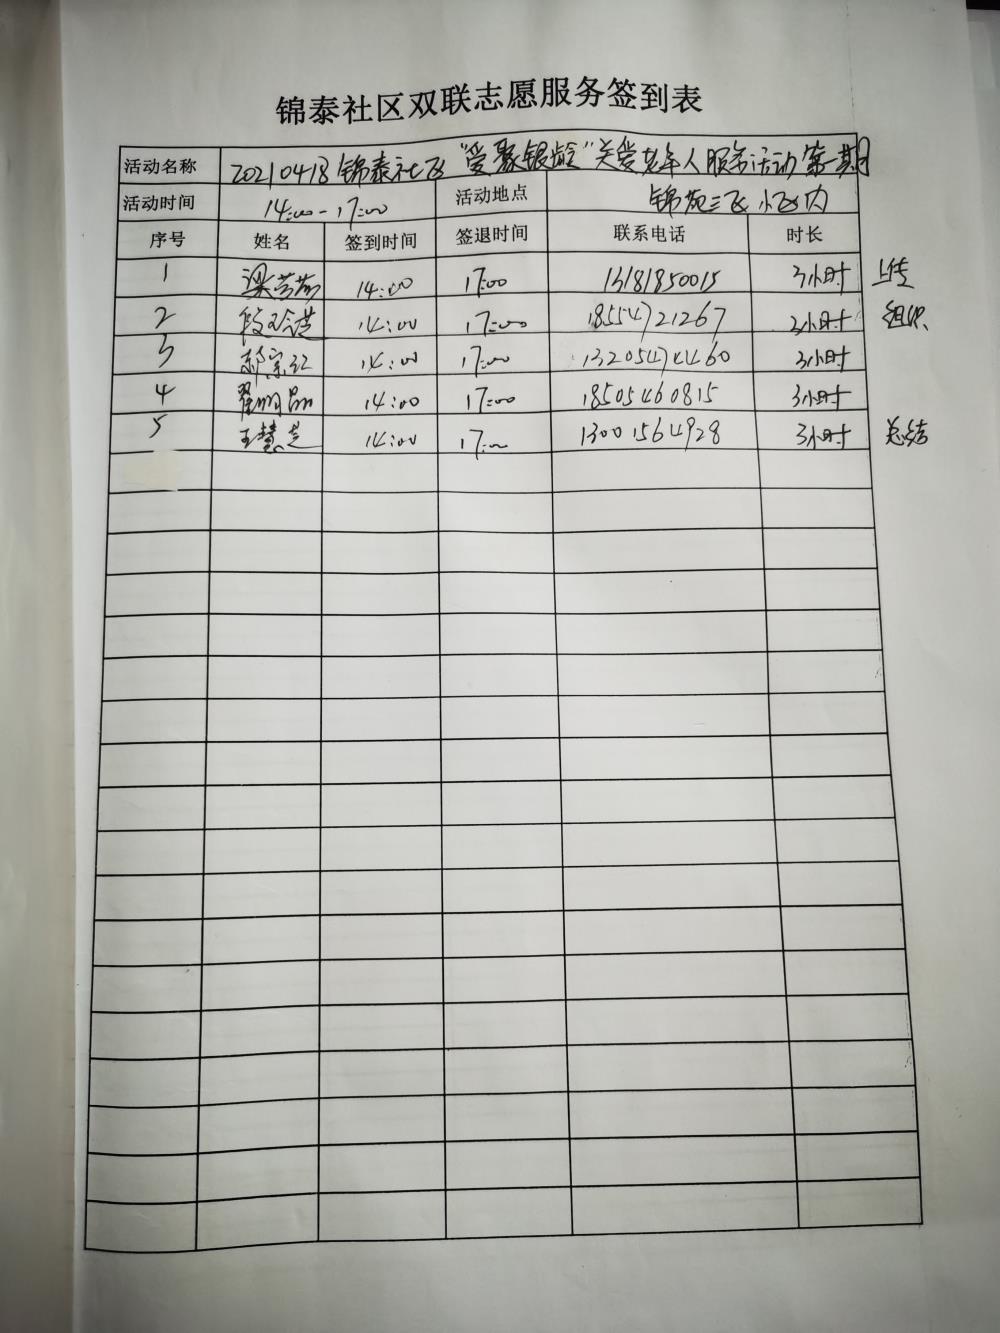 锦泰社区双联志愿服务签到表
活动名称 20210418锦泰社区“爱聚银龄”关爱老年人服务活动第一期
活动时间 14:00-17:00 活动地点 锦苑三区小区内
序号 姓名 签到时间 签退时间 联系电话 时长
1 梁芳芳 14:00 17:00 13181850015 3小时 上传
2 14:00 17:00 18554721267 3小时 组织
3 14:00 17:00 13205474460 3小时
4 翟明晶 14:00 17:00 18505460815 3小时
5 王慧芝 14:00 17:00 13001564928 3小时 总结